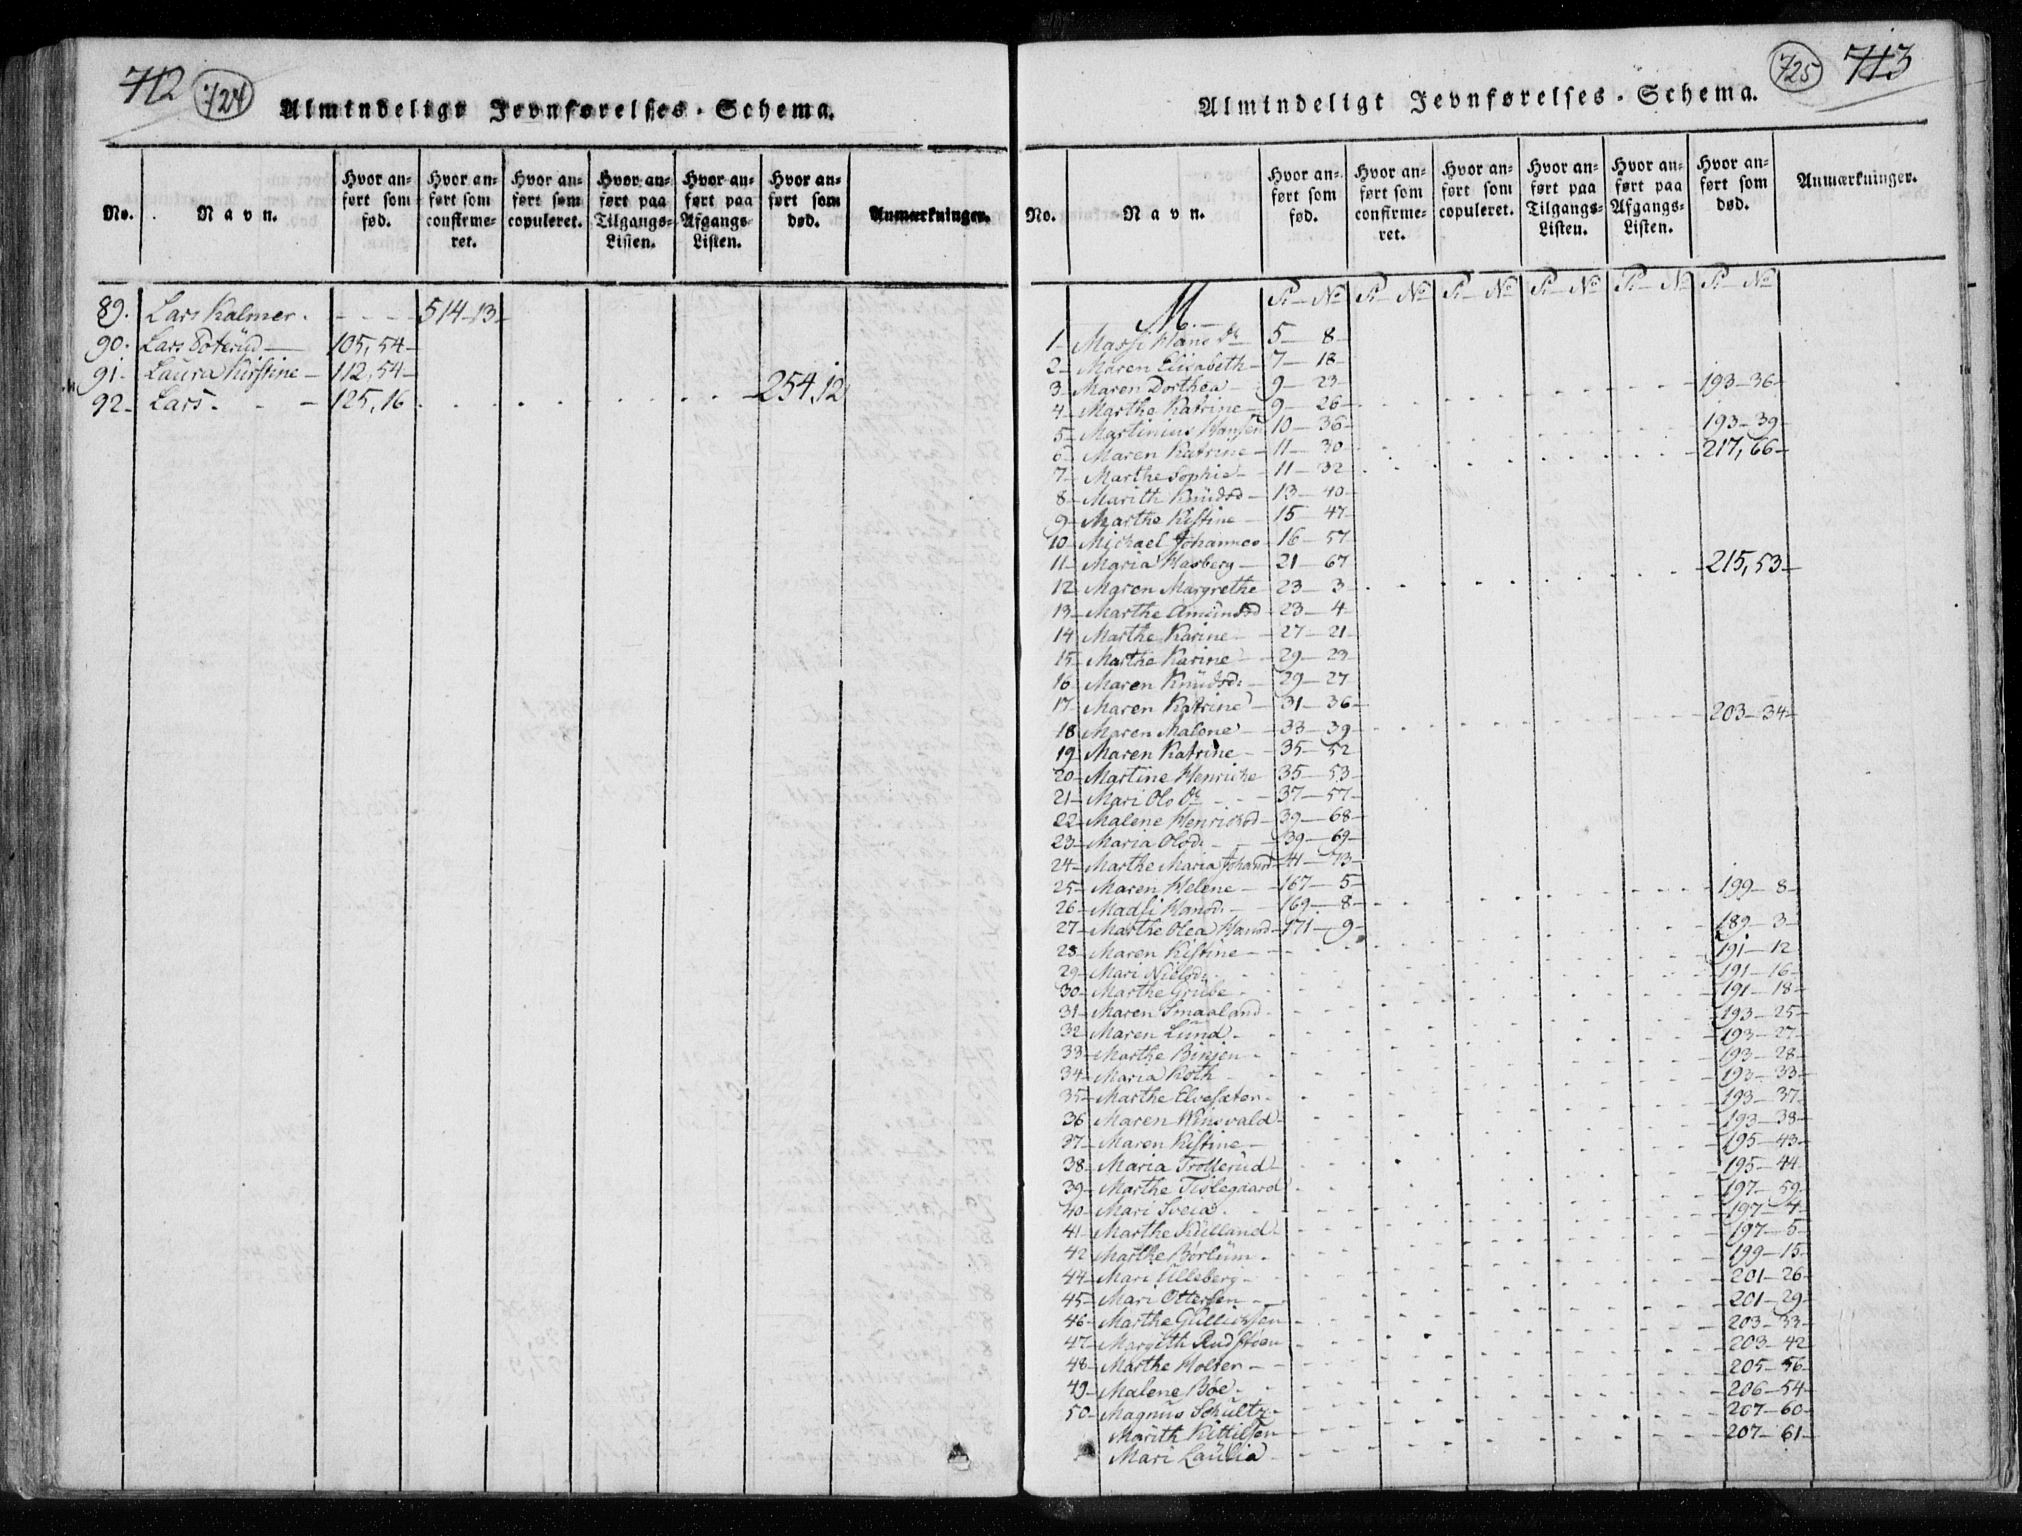 712 724
Almindeligt Jevnførelses-Schema.
No. Navn. Hvor anført som fød. Hvor anført som confirmeret. Hvor anført som copuleret. Hvor anført paa Tilgangs-Listen. Hvor anført paa Afgangs-Listen. Hvor anført som død. Anmærkninger.
89. Lars Kalmer. - - - 514-13-
90. Lars Boterüd - 105, 54-
91- Laura Kirstine - 112, 54-
92- Lars. - - 125, 16 . . . . . . . . 254, 12
725 713
Almindeligt Jevnførelses-Schema.
No. Navn. Hvor anført som fød. Hvor anført som confirmeret. Hvor anført som copuleret. Hvor anført paa Tilgangs-Listen. Hvor anført paa Afgangs-Listen. Hvor anført som død. Anmærkninger.
M. - P- No P- No P- No P- No P- No P- No
1- Massi Hans Dr 5- 8-
2- Maren Elisabeth- 7- 18-
3- Maren Dorthea- 9- 23- 193-36-
4- Marthe Katrine- 9- 26-
5- Martinius Hansen 10- 36- 193-39-
6- Maren Katrine- 11- 30- 217, 66-
7- Marthe Sophie- 11- 32-
8- Marith Knüdsd- 13- 40-
9- Marthe Kistine- 15- 47-
10- Michael Johannes- 16- 57-
11- Maria Hasberg- 21- 67 215, 53-
12- Maren Margrethe- 23- 3-
13- Marthe Amündsd- 23- 4-
14 Marthe Karine- 27- 21-
15- Marthe Karine- 29- 23-
16- Maren Knüdsd: 29- 27
17- Maren Katrine- 31- 36-
18 Maren Malene- 33- 39- 203-34-
19- Maren Katrine- 35- 52
20- Martine Henricke 35- 53-
21- Mari Ols Dr - - 37- 57-
22- Malene Henricksd- 39- 68-
23- Maria Olsd: - 39- 69-
24- Marthe Maria Johansd- 41- 73-
25- Maren Helene- 167- 5-
26- Madsi Hansd: - 169- 8- 199- 8-
27- Marthe Olea Hansd- 171- 9-
28- Maren Kistine- 189- 3-
29- Mari Nielsd: 191- 12
30- Marthe Grübe- 191- 16-
31- Maren Smaaland- 191- 18-
32- Maren Lund- 193- 25-
33- Marthe Binjen- 193- 27-
34- Maria Roth- 193- 28-
35- Marthe Elvesæter- 193- 33-
36 Maren Winsvald- 193- 37-
37- Maren Kistine- 193- 38-
38- Maria Trollerüd- 195- 43-
39- Marthe Tislegaard 195- 44-
40- Mari Sveia- 197- 59-
41- Marthe Külland- 197- 4-
42 Marthe Børlüm- 197- 5-
44- Mari Ulleberg- 199- 15-
45- Mari Ottersen- 201- 26-
46- Marthe Gullicksen 201- 29-
47- Margith Rudstøen 203- 33-
48- Marthe Holter- 203- 42
49- Malene Bøe- 205- 56
50- Magnus Schultz- 206- 54-
Marith Kittilsen 207- 60-
Mari Laülia 207- 61-